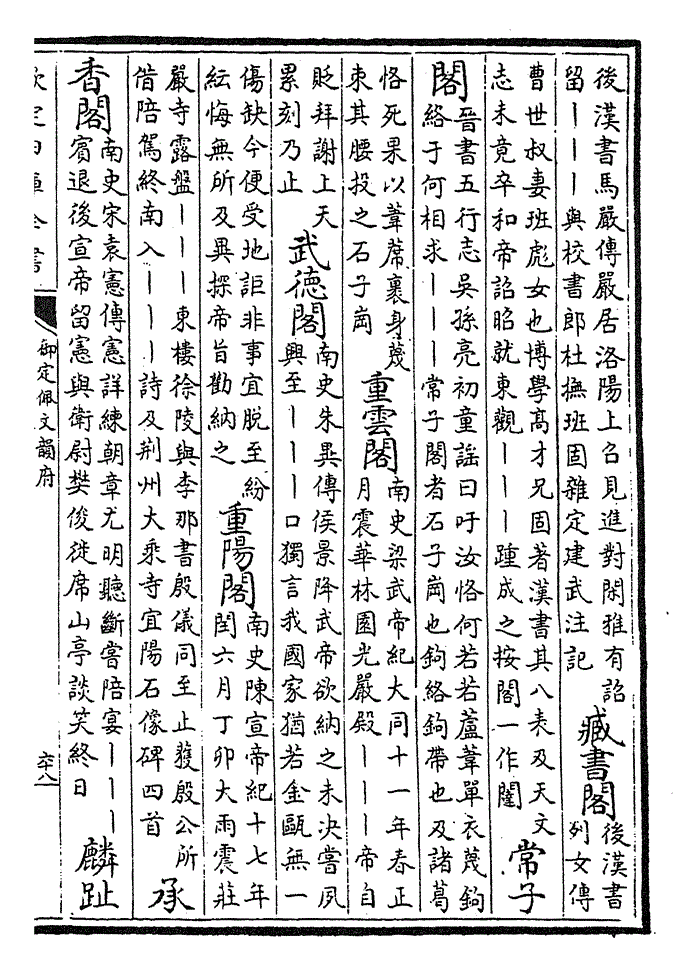 後漢書馬嚴傳嚴居洛陽上召見進對閑雅有詔
留｜｜｜與校書郎杜撫班固雜定建武注記
臧書閣
後漢書
列女傳
曹世叔妻班彪女也博學高才兄固著漢書其八表及天文
志未竟卒和帝詔昭就東觀｜｜｜踵成之按閣一作閤
常子
閣
晉書五行志吳孫亮初童謠曰吁汝恪何若若蘆葦單衣蔑鉤
絡于何相求｜｜｜常子閣者石子崗也鉤絡鉤帶也及諸葛
恪死果以葦席裹身蔑
束其腰投之石子崗
重雲閣
南史梁武帝紀大同十一年春正
月震華林園光嚴殿｜｜｜帝自
貶拜謝上天
累刻乃止
武德閣
南史朱异傳侯景降武帝欲納之未决嘗夙
興至｜｜｜口獨言我國家猶若金甌無一
傷缺今便受地詎非事宜脱至紛
紜悔無所及异探帝旨勸納之
重陽閣
南史陳宣帝紀十七年
閏六月丁卯大雨震莊
嚴寺露盤｜｜｜東樓徐陵與李那書殷儀同至止獲殷公所
借陪駕終南入｜｜｜詩及荆州大乘寺宜陽石像碑四首
承
香閣
南史宋袁憲傳憲詳練朝章尤明聽斷嘗陪宴｜｜｜
賓退後宣帝留憲與衛尉樊俊徙席山亭談笑終日
麟趾
欽定四庫全書
御定佩文韻府
卒八